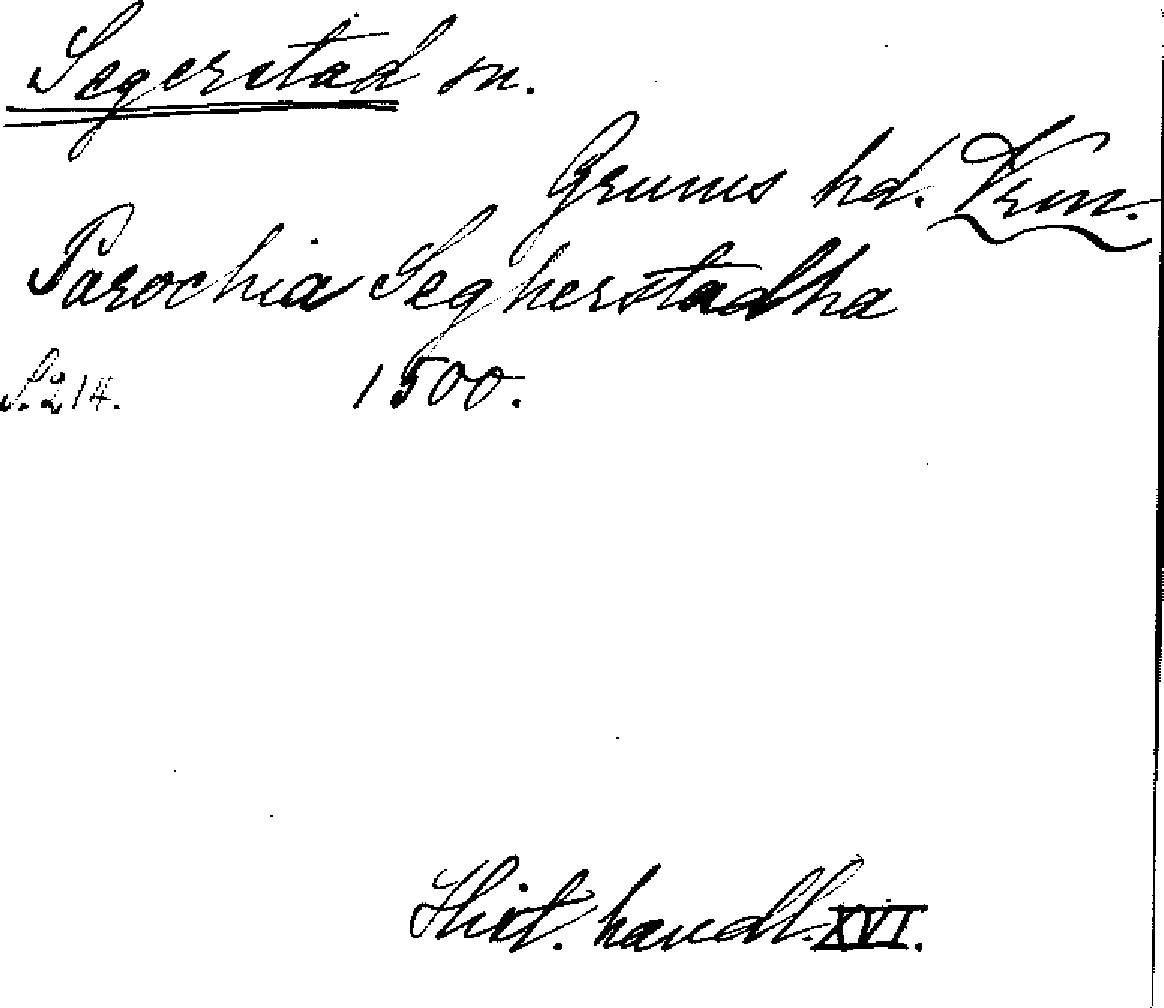 Segerstad sn.
Grums hd. Vrm.
Parochia Segherstadha
S. 214. 1500.
Hist. handl. XVI.